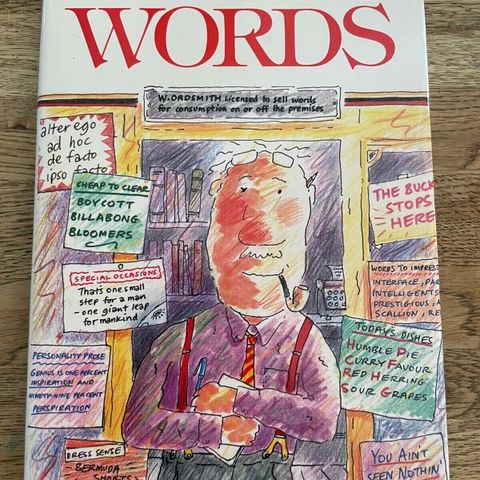 WORDS
W.ORDSMITH Licensed to sell words
for consumption on or off the premises
alter ego
ad hoc
de facto
ipso facto
CHEAP TO CLEAR
BOYCOTT
BILLABONG
BLOOMERS
THE BUCK
STOPS
HERE
SPECIAL OCCASIONS
That's one small
step for a man
- one giant leap
for mankind
WORDS TO IMPRESS
INTERFACE,
INTELLIGENTS
PRESTIGIOUS,
SCALLION,
TODAY'S DISHES
HUMBLE PIE
CURRY FAVOUR
RED HERRING
SOUR GRAPES
PERSONALITY PROSE
GENIUS IS ONE PERCENT
INSPIRATION AND
NINETY-NINE PERCENT
PERSPIRATION
DRESS SENSE
BERMUDA
SHORTS
YOU AIN'T
SEEN NOTHIN'